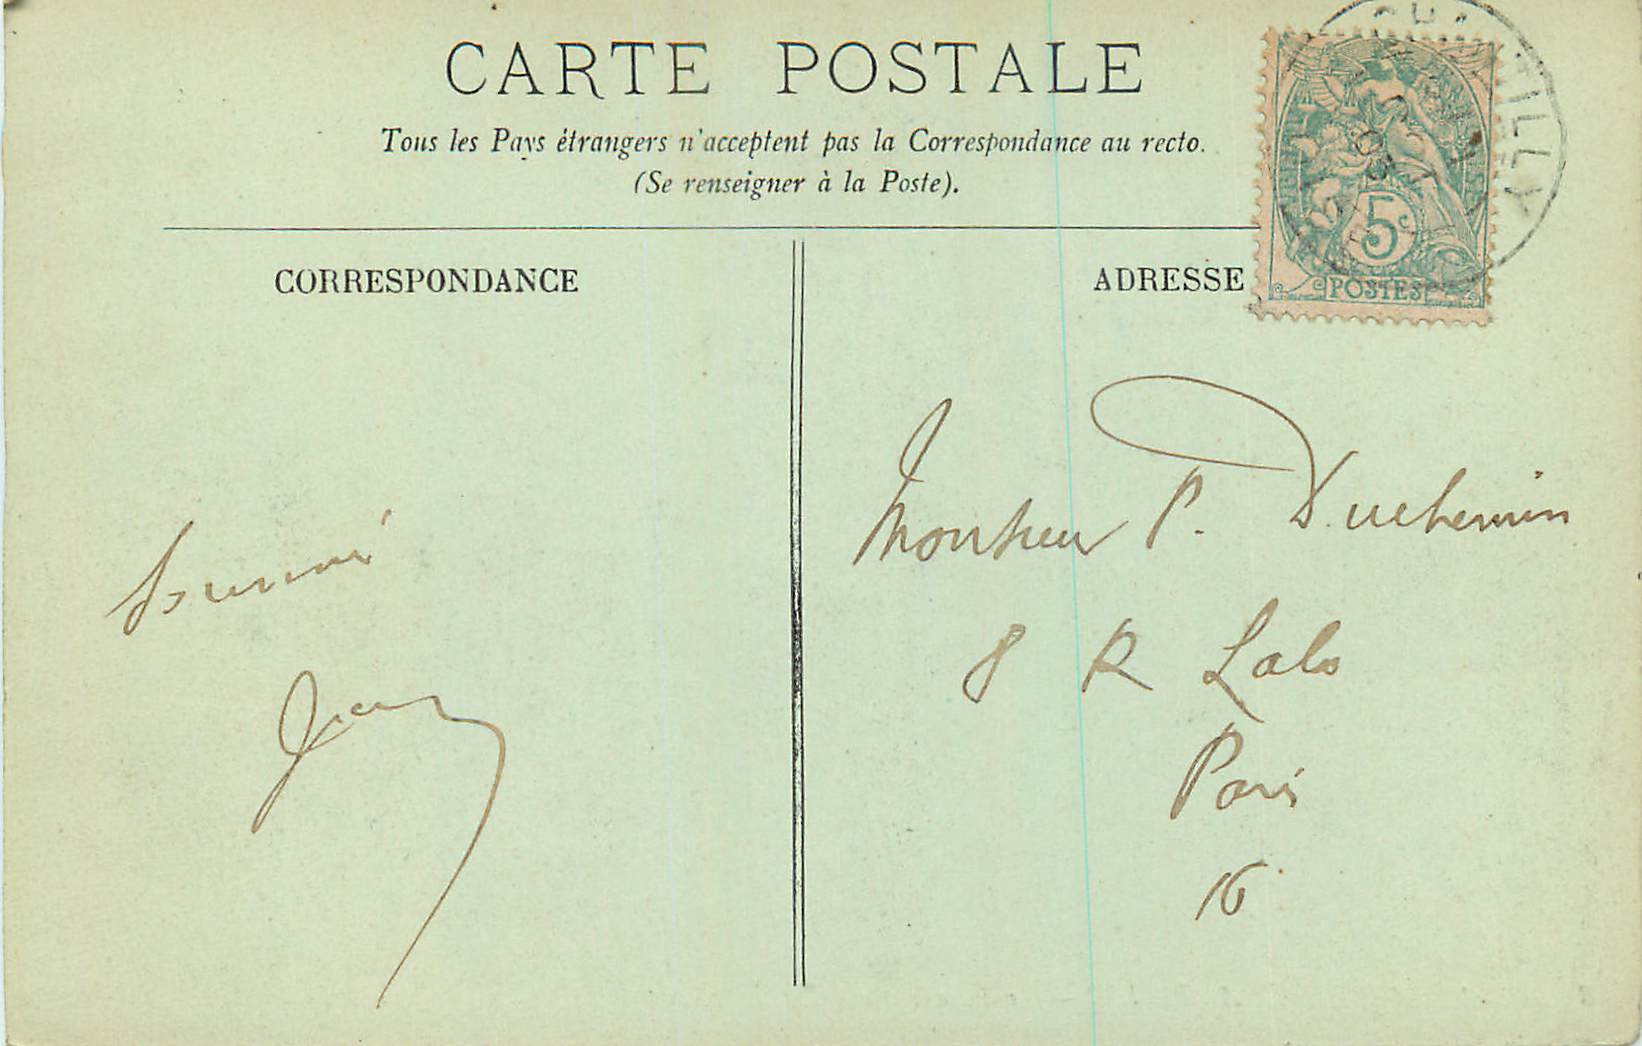 CARTE POSTALE
Tous les Pays étrangers n'acceptent pas la Correspondance au recto.
(Se renseigner à la Poste).
CORRESPONDANCE
ADRESSE
CHANTILLY
5c
POSTES
Monsieur P. Duchemin
8 R Lalo
Paris
16